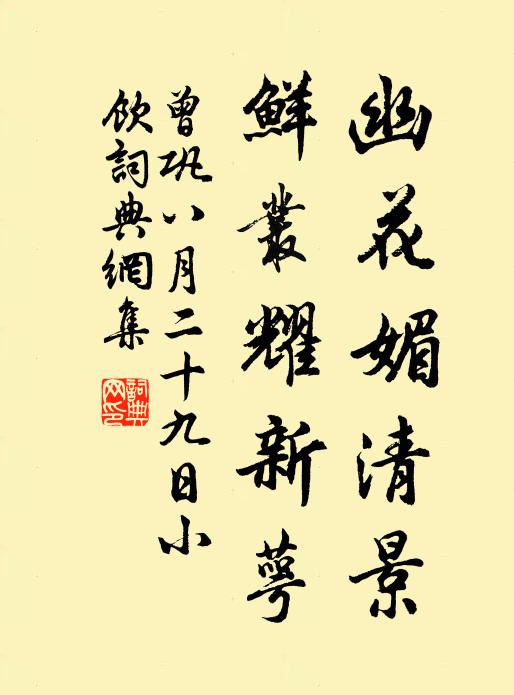 幽花媚清景
鮮叢耀新萼
曾巩八月二十九日小
飲詞典網集
詞典
网印